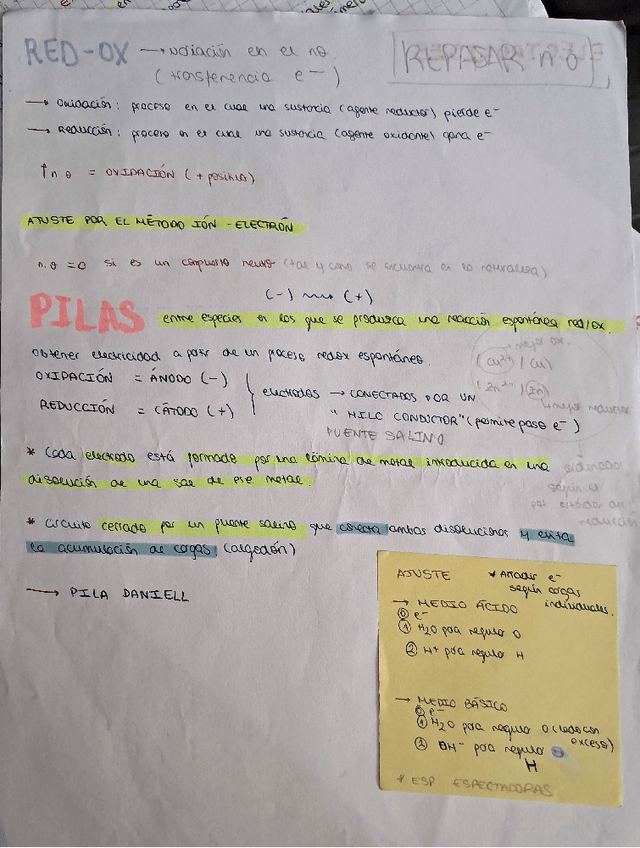 RED-OX → variación en el nº
(transferencia e⁻)
REPASAR nº o
→ Oxidación: proceso en el cual una sustancia (agente reductor) pierde e⁻
→ Reducción: proceso en el cual una sustancia (agente oxidante) gana e⁻
↑n.o = OXIDACIÓN (+ positivo)
AJUSTE POR EL MÉTODO IÓN-ELECTRÓN
n.o =0 si es un compuesto neutro (tal y como se encuentra en la naturaleza)
(-) → (+)
PILAS entre especies en los que se produzca una reacción espontánea red/ox.
Obtener electricidad a partir de un proceso redox espontáneo.
OXIDACIÓN = ÁNODO (-)
REDUCCIÓN = CÁTODO (+)
electrodos → CONECTADOS POR UN
"HILO CONDUCTOR" (permite paso e⁻)
PUENTE SALINO
→ mejor ox.
(Cu²⁺) / (Cu)
(Zn²⁺) / (Zn)
↳ mejor reductor
* Cada electrodo está formado por una lámina de metal introducida en una
disolución de una sal de ese metal.
ordenados
según el
pot estándar de
reducción
* Circuito cerrado por un puente salino que conecta ambas disoluciones y evita
la acumulación de cargas (algodón)
→ PILA DANIELL
AJUSTE * Añadir e⁻
según cargas
individuales.
→ MEDIO ÁCIDO
⓪ e⁻
① H2O para regular O
② H+ para regular H
→ MEDIO BÁSICO
⓪ e⁻
① H2O para regular O (lado con
exceso)
② OH⁻ para regular
H
* ESP. ESPECTADORAS